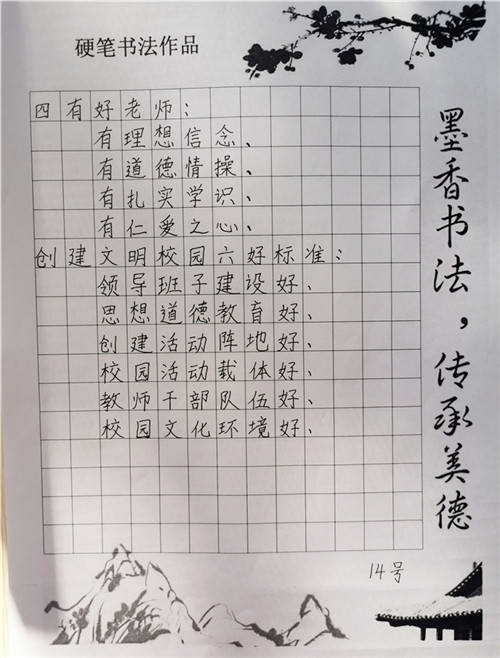 硬笔书法作品
四有好老师：
有理想信念、
有道德情操、
有扎实学识、
有仁爱之心、
创建文明校园六好标准：
领导班子建设好、
思想道德教育好、
创建活动阵地好、
校园活动载体好、
教师干部队伍好、
校园文化环境好、
墨香书法，传承美德
14号